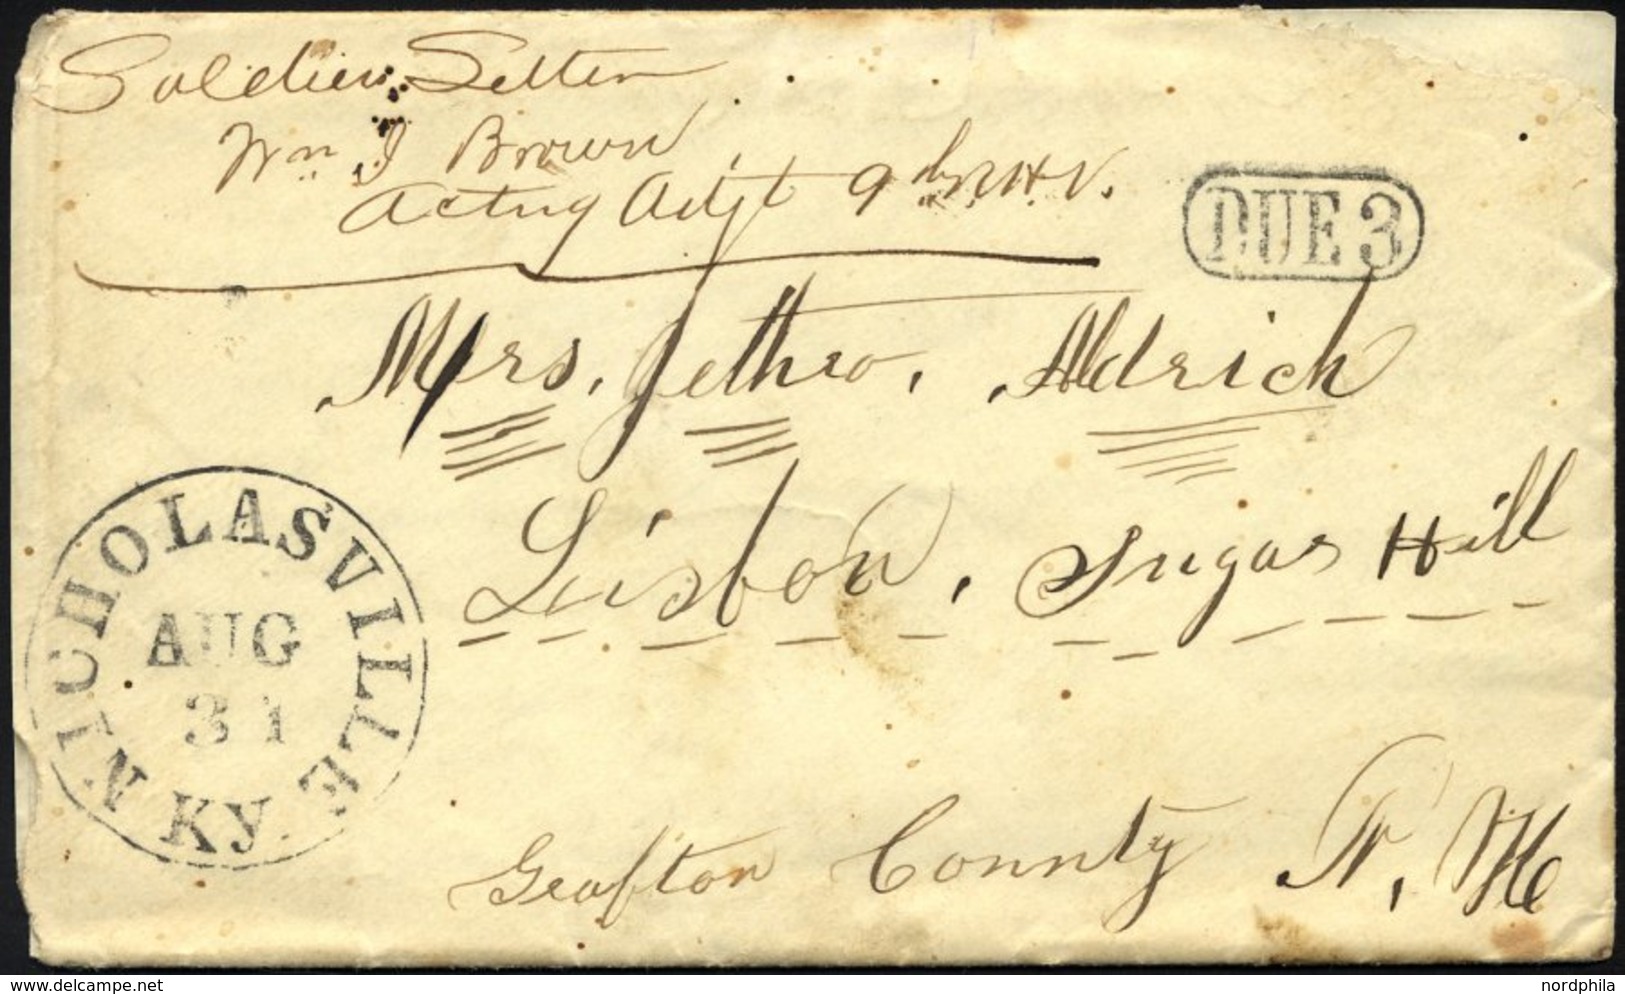 Soldier Letter
Wm I Brown
Actng Adjt 9th N.H.V.
DUE 3
Mrs. Jethro. Aldrich
Lisbon, Sugar Hill
NICHOLASVILLE KY.
AUG
31
Grafton County N, H
www.delcampe.net
nordphila